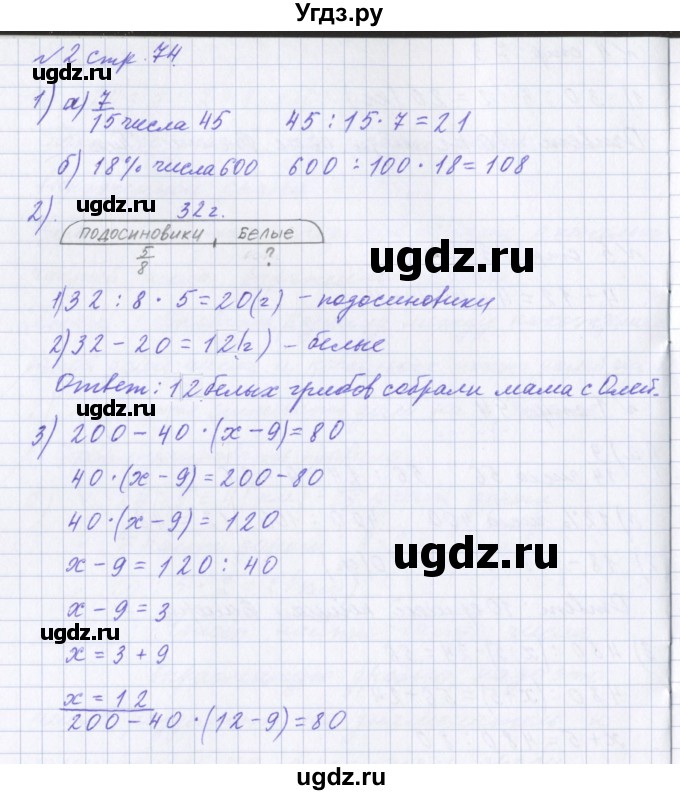 Угдз.ру
№2 стр. 74
ugdz.ru
1) а) 7/15 числа 45 45 : 15 · 7 = 21
б) 18% числа 600 600 : 100 · 18 = 108
ugdz.ru
2). 32 г.
подосиновики, белые
5/8 ?
ugdz.ru
1) 32 : 8 · 5 = 20(г) – подосиновики
2) 32 – 20 = 12(г) – белые
Ответ: 12 белых грибов собрали мама с Олей.
ugdz.ru
3) 200 – 40 · (х – 9) = 80
40 · (х – 9) = 200 – 80
40 · (х – 9) = 120
ugdz.ru
х – 9 = 120 : 40
х – 9 = 3
ugdz.ru
х = 3 + 9
х = 12
200 – 40 · (12 – 9) = 80
ugdz.ru
ugdz.ru